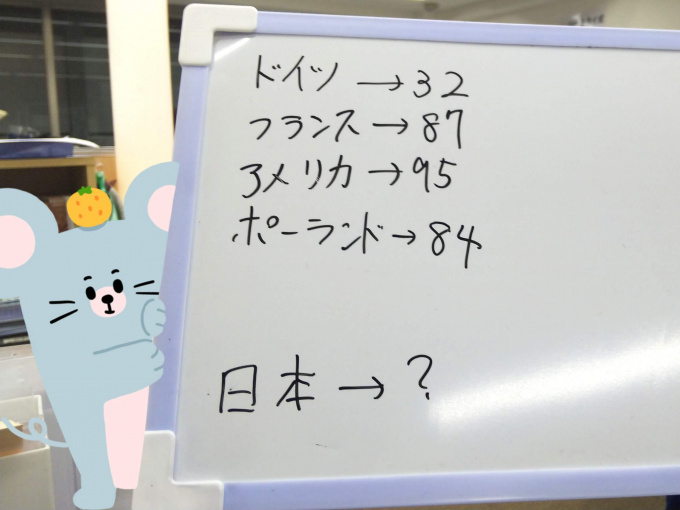 ドイツ → 32
フランス → 87
アメリカ → 95
ポーランド → 84
日本 → ?